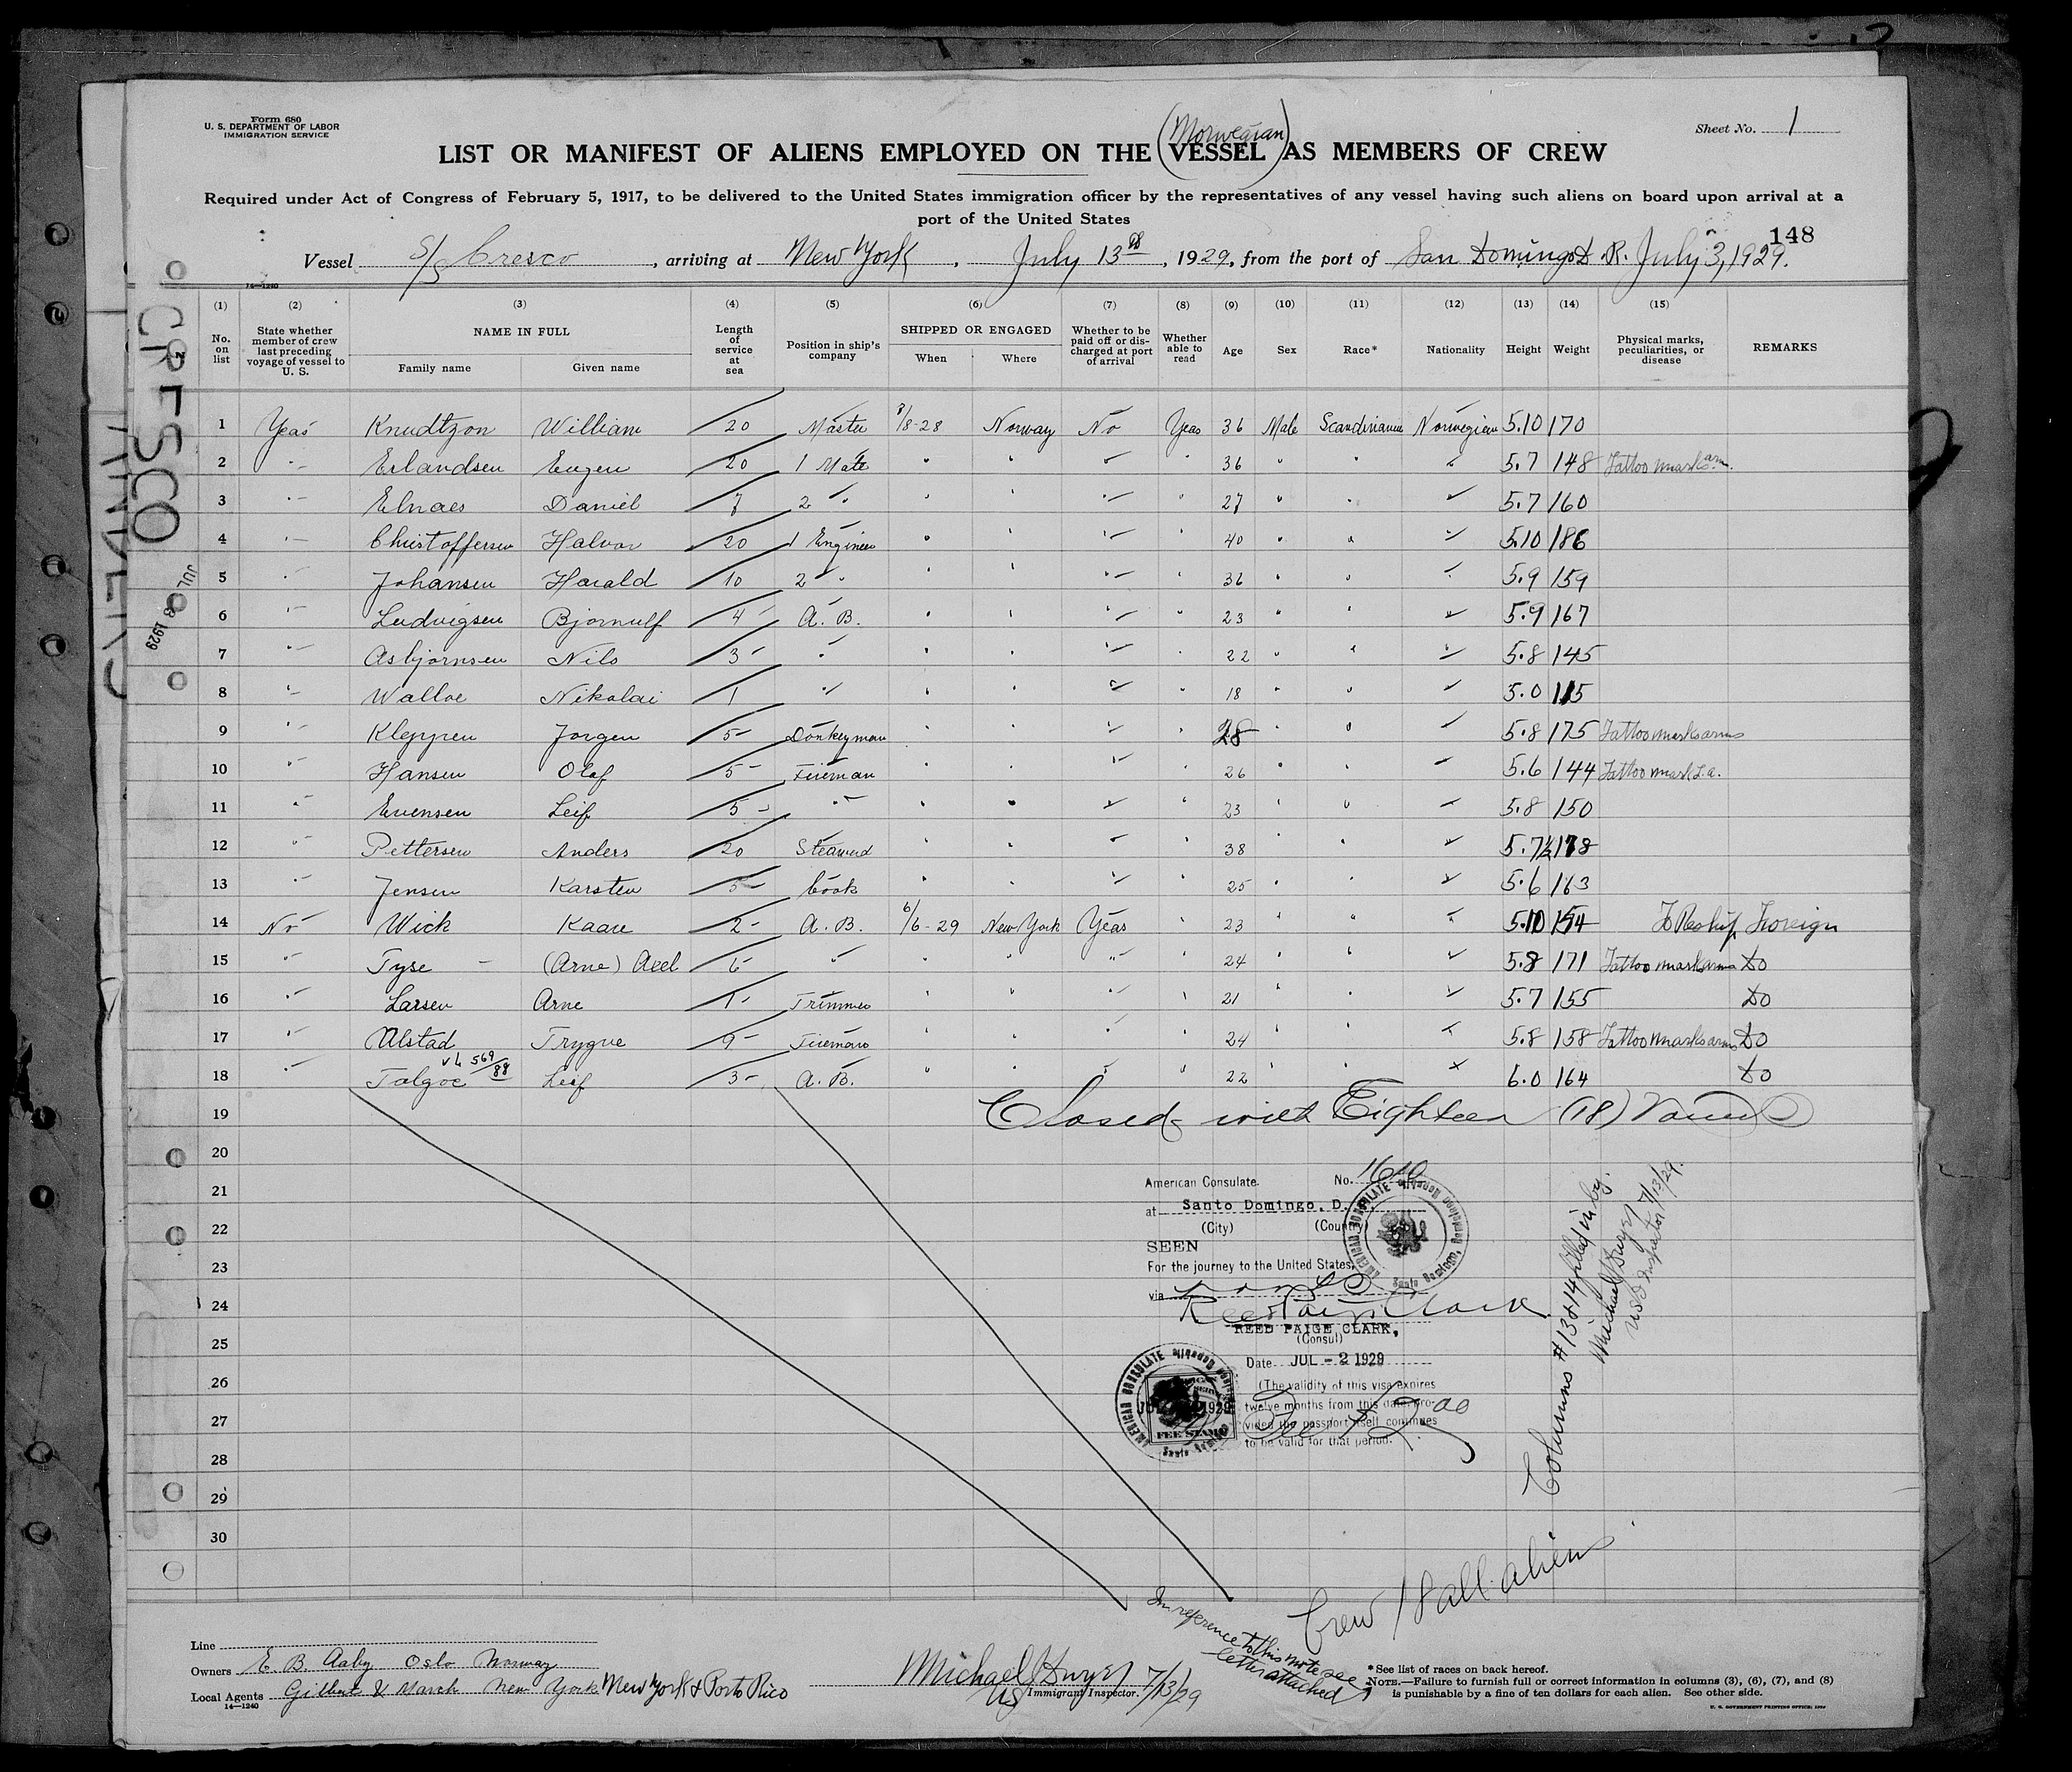 Form 680
U. S. DEPARTMENT OF LABOR
IMMIGRATION SERVICE
Sheet No. 1
(Norwegian)
LIST OR MANIFEST OF ALIENS EMPLOYED ON THE VESSEL AS MEMBERS OF CREW
Required under Act of Congress of February 5, 1917, to be delivered to the United States immigration officer by the representatives of any vessel having such aliens on board upon arrival at a
port of the United States
148
Vessel S/S Cresco, arriving at New York, July 13th, 1929, from the port of San Domingo D.R. July 3, 1929.
14—1240
CRESCO
JUL 13 1929
(1) (2) (3) (4) (5) (6) (7) (8) (9) (10) (11) (12) (13) (14) (15)
No. on list | State whether member of crew last preceding voyage of vessel to U. S. | NAME IN FULL Family name Given name | Length of service at sea | Position in ship's company | SHIPPED OR ENGAGED When Where | Whether to be paid off or discharged at port of arrival | Whether able to read | Age | Sex | Race* | Nationality | Height | Weight | Physical marks, peculiarities, or disease | REMARKS
1 Yeas Knudtzon William 20 Master 8/8-28 Norway No Yeas 36 Male Scandinavian Norwegian 5.10 170
2 " Erlandsen Eugen 20 1 Mate " " " " 36 " " " 5.7 148 Tattoo marks arm.
3 " Elnaes Daniel 7 2 " " " " " 27 " " " 5.7 160
4 " Christoffersen Halvor 20 1 Engineer " " " " 40 " " " 5.10 186
5 " Johansen Harald 10 2 " " " " " 36 " " " 5.9 159
6 " Ludvigsen Bjornulf 4 A. B. " " " " 23 " " " 5.9 167
7 " Asbjornsen Nils 3 " " " " " 22 " " " 5.8 145
8 " Walloe Nikolai 1 " " " " " 18 " " " 5.0 115
9 " Kleppen Jorgen 5 Donkeyman " " " " 28 " " " 5.8 175 Tattoo marks arms
10 " Hansen Olaf 5 Fireman " " " " 26 " " " 5.6 144 Tattoo mark L.a.
11 " Evensen Leif 5 " " " " " 23 " " " 5.8 150
12 " Pettersen Anders 20 Steward " " " " 38 " " 5.7½ 178
13 " Jensen Karsten 5 Cook " " " " 25 " " " 5.6 163
14 No Wick Kaare 2 A. B. 6/6-29 New York Yeas " 23 " " " 5.10 154 To Reship Foreign
15 " Tyse - (Arne) Axel 6 " " " " " 24 " " " 5.8 171 Tattoo marks arms Do
16 " Larsen Arne 1 Trimmer " " " " 21 " " " 5.7 155 Do
17 " Alstad Trygve 9 Fireman " " " " 24 " " " 5.8 158 Tattoo marks arms Do
vL 569/88
18 " Talgoe Leif 3 A. B. " " " " 22 " " " 6.0 164 Do
19 Closed with Eighteen (18) Names
20
21
22
23
24
25
26
27
28
29
30
American Consulate No.
at Santo Domingo, D.
(City) (Country)
SEEN
For the journey to the United States,
via
Reed Paige Clark
REED PAIGE CLARK,
(Consul)
Date JUL - 2 1929
(The validity of this visa expires
twelve months from this date, pro-
vided the passport itself continues
to be valid for that period.
AMERICAN CONSULATE Santo Domingo, Dominican Republic
AMERICAN CONSULATE
1929
FEE STAMP
Columns #13 & 14 filled in by
Michael Dwyer
US Inspector 7/13/29.
Crew 18 all aliens
In reference to this note see
letter attached
Line
Owners E. B. Aaby Oslo Norway
Local Agents Gilbert & March New York New York & Porto Rico
14—1240
Michael Dwyer 7/13/29
US Immigrant Inspector.
*See list of races on back hereof.
NOTE.—Failure to furnish full or correct information in columns (3), (6), (7), and (8)
is punishable by a fine of ten dollars for each alien. See other side.
U. S. GOVERNMENT PRINTING OFFICE: 1924